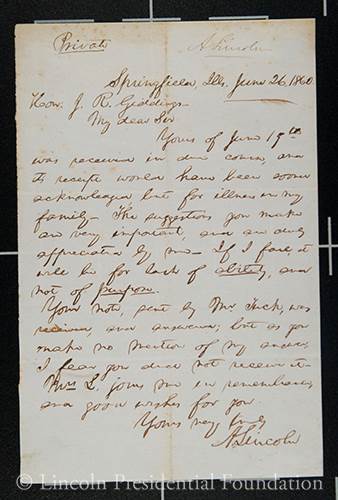 Private
A Lincoln
Springfield, Ills, June 26, 1860
Hon. J. R. Giddings
My dear Sir
Yours of June 19th
was received in due course, and
its receipt would have been sooner
acknowledged but for illness in my
family— The suggestions you make
are very important, and are duly
appreciated by me— If I fail, it
will be for lack of ability, and
not of purpose.
Your note, sent by Mr. Tuck, was
received, and answered; but as you
make no mention of my answer,
I fear you did not receive it—
Mrs L. joins me in remembrances
and good wishes for you.
Yours very truly
A. Lincoln
© Lincoln Presidential Foundation